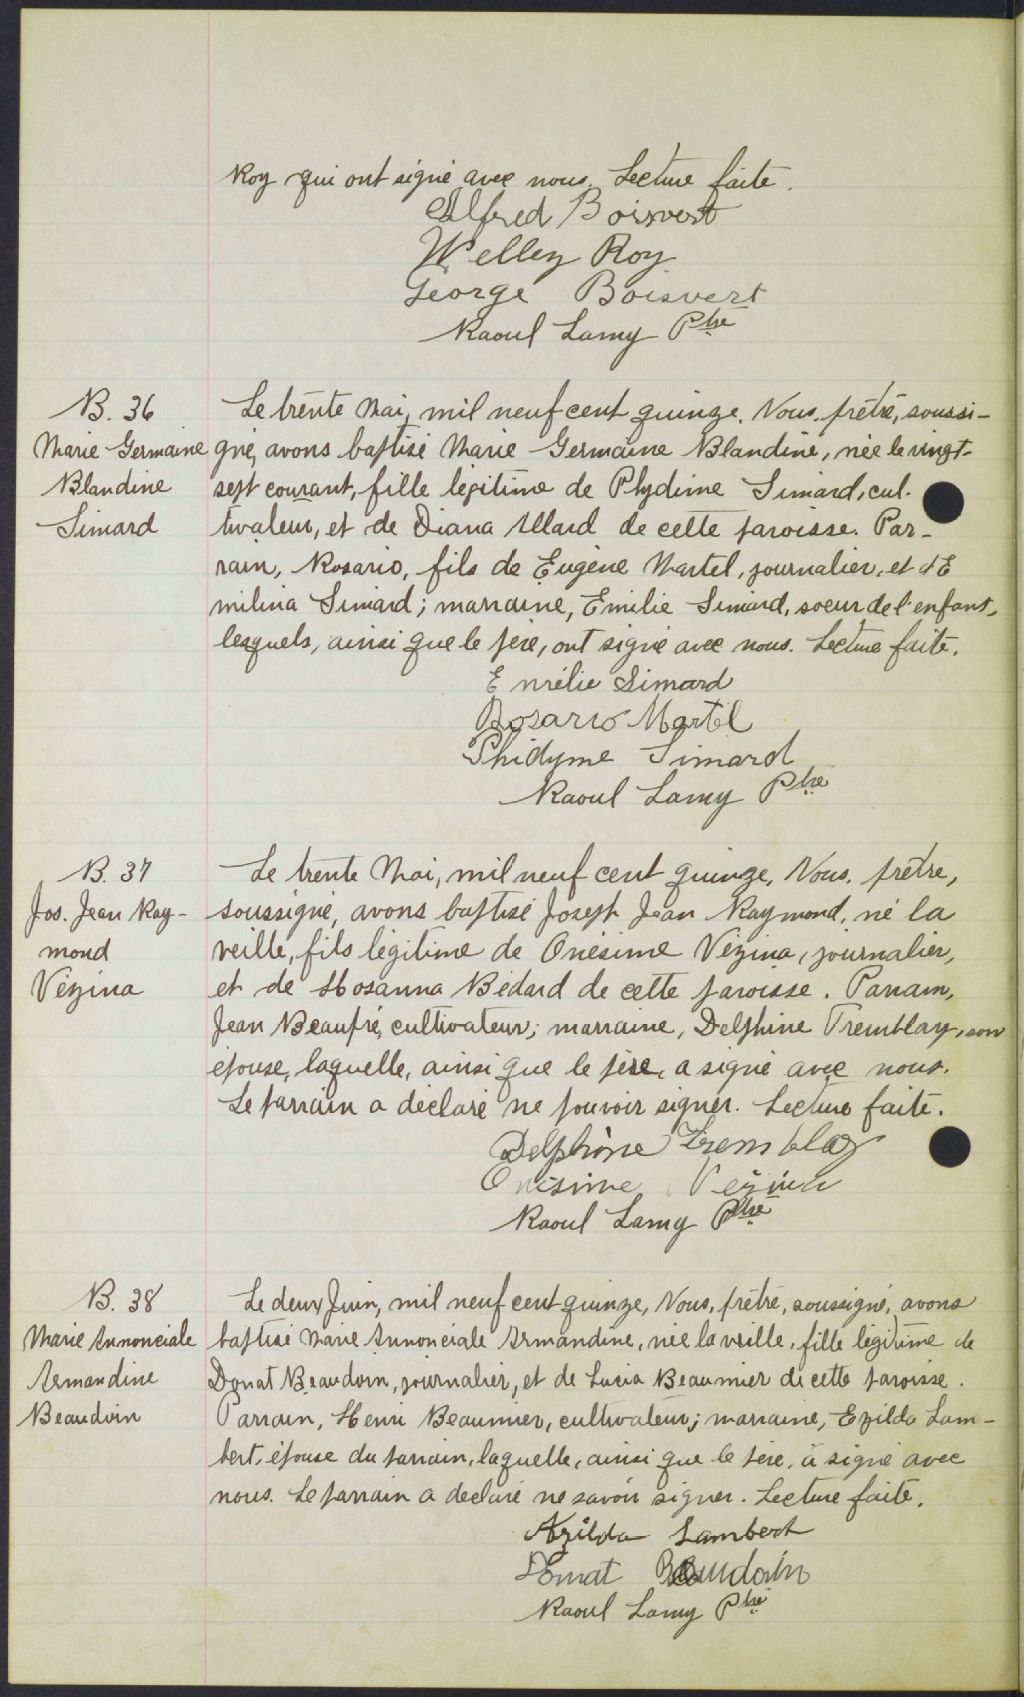 Roy qui ont signé avec nous. Lecture faite.
Alfred Boisvert
Welley Roy
George Boisvert
Raoul Lamy Ptre
B. 36
Marie Germaine
Blandine
Simard
Le trente Mai, mil neuf cent quinze, Nous, prêtre, soussi-
gné, avons baptisé Marie Germaine Blandine, née le vingt-
sept courant, fille légitime de Phydime Simard, cul-
tivateur, et de Diana Allard de cette paroisse. Par-
rain, Rosario, fils de Eugène Martel, journalier, et d'E
milina Simard; marraine, Emilie Simard, soeur de l'enfant,
lesquels, ainsi que le père, ont signé avec nous. Lecture faite.
Emélie Simard
Rosario Martel
Phidyme Simard
Raoul Lamy Ptre
B. 37
Jos. Jean Ray-
mond
Vézina
Le trente Mai, mil neuf cent quinze, Nous, prêtre,
soussigné, avons baptisé Joseph Jean Raymond, né la
veille, fils légitime de Onésime Vézina, journalier,
et de Hosanna Bédard de cette paroisse. Parrain,
Jean Beaupré, cultivateur; marraine, Delphine Tremblay, son
épouse, laquelle, ainsi que le père, a signé avec nous.
Le parrain a déclaré ne pouvoir signer. Lecture faite.
Delphine Tremblay
Onisime Vezina
Raoul Lamy Ptre
B. 38
Marie Annonciale
Armandine
Beaudoin
Le deux Juin, mil neuf cent quinze, Nous, prêtre, soussigné, avons
baptisé Marie Annonciale Armandine, née la veille, fille légitime de
Donat Beaudoin, journalier, et de Lucia Beaumier de cette paroisse.
Parrain, Henri Beaumier, cultivateur; marraine, Ezilda Lam-
bert, épouse du parrain, laquelle, ainsi que le père, a signé avec
nous. Le parrain a déclaré ne savoir signer. Lecture faite.
Azilda Lambert
Donat Beaudoin
Raoul Lamy Ptre